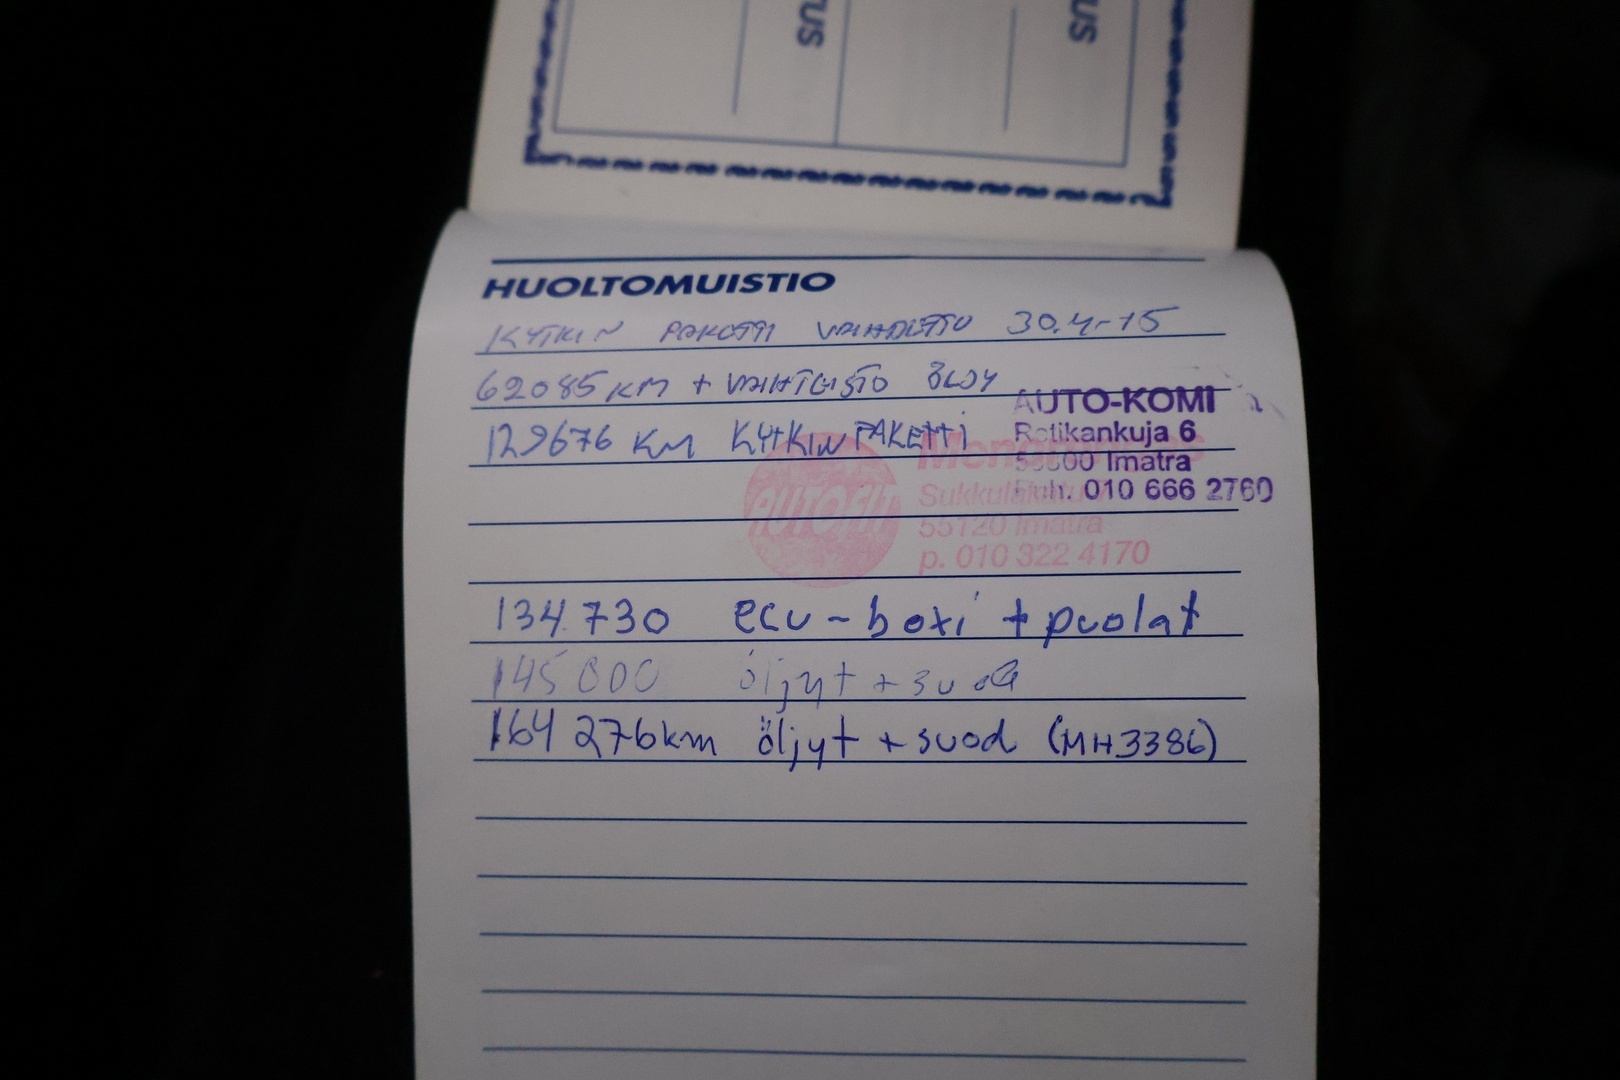 US
US
HUOLTOMUISTIO
KYTKIN PAKETTI VAIHDETTU 30.4-15
62085 KM + VAIHTEISTO ÖLJY
AUTO-KOMI
129676 KM KYTKINPAKETTI
Ratikankuja 6
Imatra
Puh. 010 666 2760
AUTOFIT
55120 Imatra
p. 010 322 4170
134.730 ecu-boxi + puolat
145 000 öljyt + suod
164 276km öljyt + suod (MH3386)